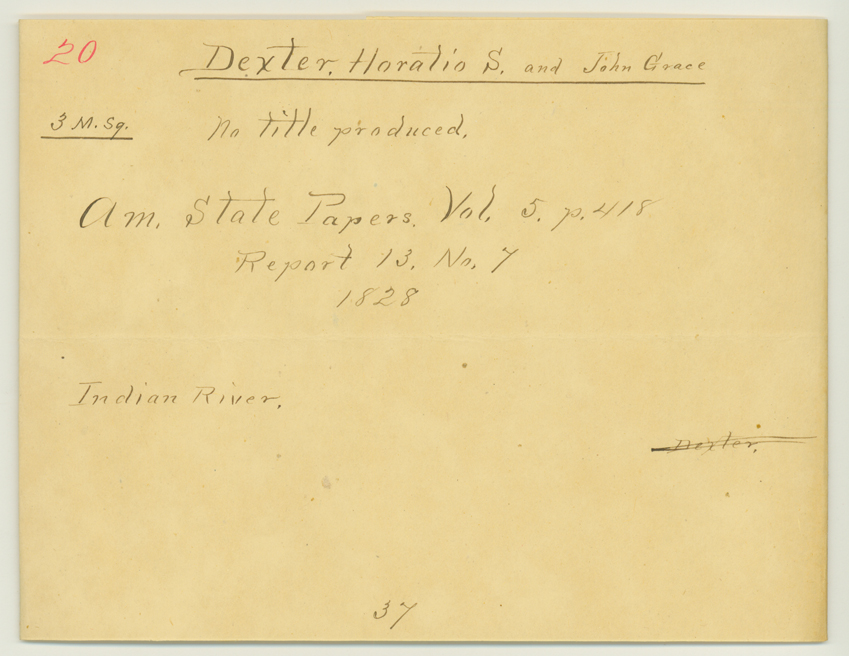 20
Dexter, Horatio S. and John Grace
3 M. Sq.
No title produced.
Am. State Papers. Vol. 5. p. 418
Report 13. No. 7
1828
Indian River.
Dexter.
37